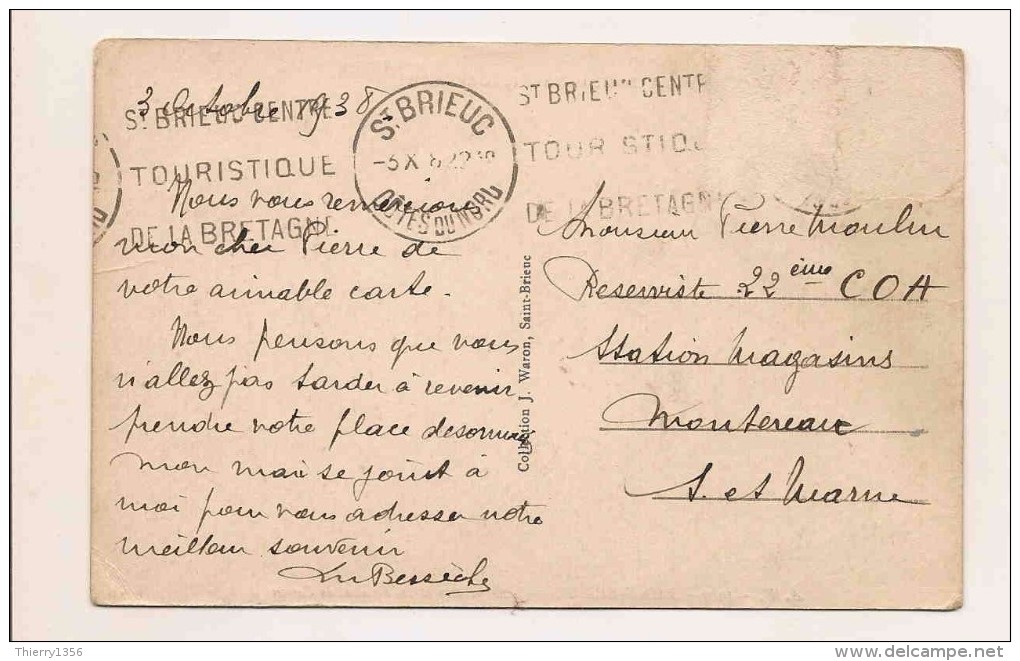 3 Octobre 1938
ST BRIEUC CENTRE
TOURISTIQUE
DE LA BRETAGNE
ST BRIEUC
-3 X 8
CÔTES DU NORD
ST BRIEUC CENTR
TOURISTIQU
DE LA BRETAGN
Nous vous remercions
mon cher Pierre de
votre aimable carte.
Nous pensons que vous
n'allez pas tarder à revenir
prendre votre place désormais
mon mari se joint à
moi pour vous adresser notre
meilleur souvenir
Collection J. Waron, Saint-Brieuc
Monsieur Pierre Moulin
Reserviste 22ème COA
Station Magasins
Montereau
S. et Marne
Thierry1356
www.delcampe.net